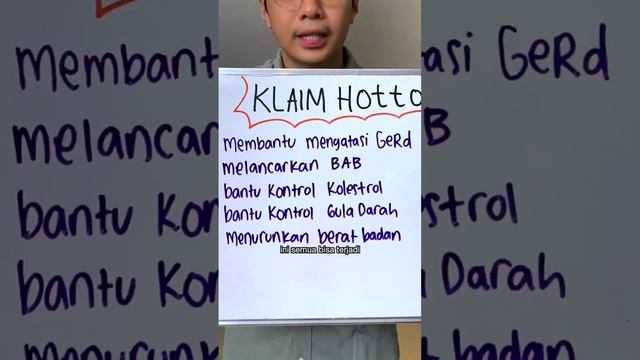 KLAIM HOTTO
membantu mengatasi GeRd
melancarkan BAB
bantu Kontrol Kolestrol
bantu Kontrol Gula Darah
menurunkan berat badan
ini semua bisa terjadi